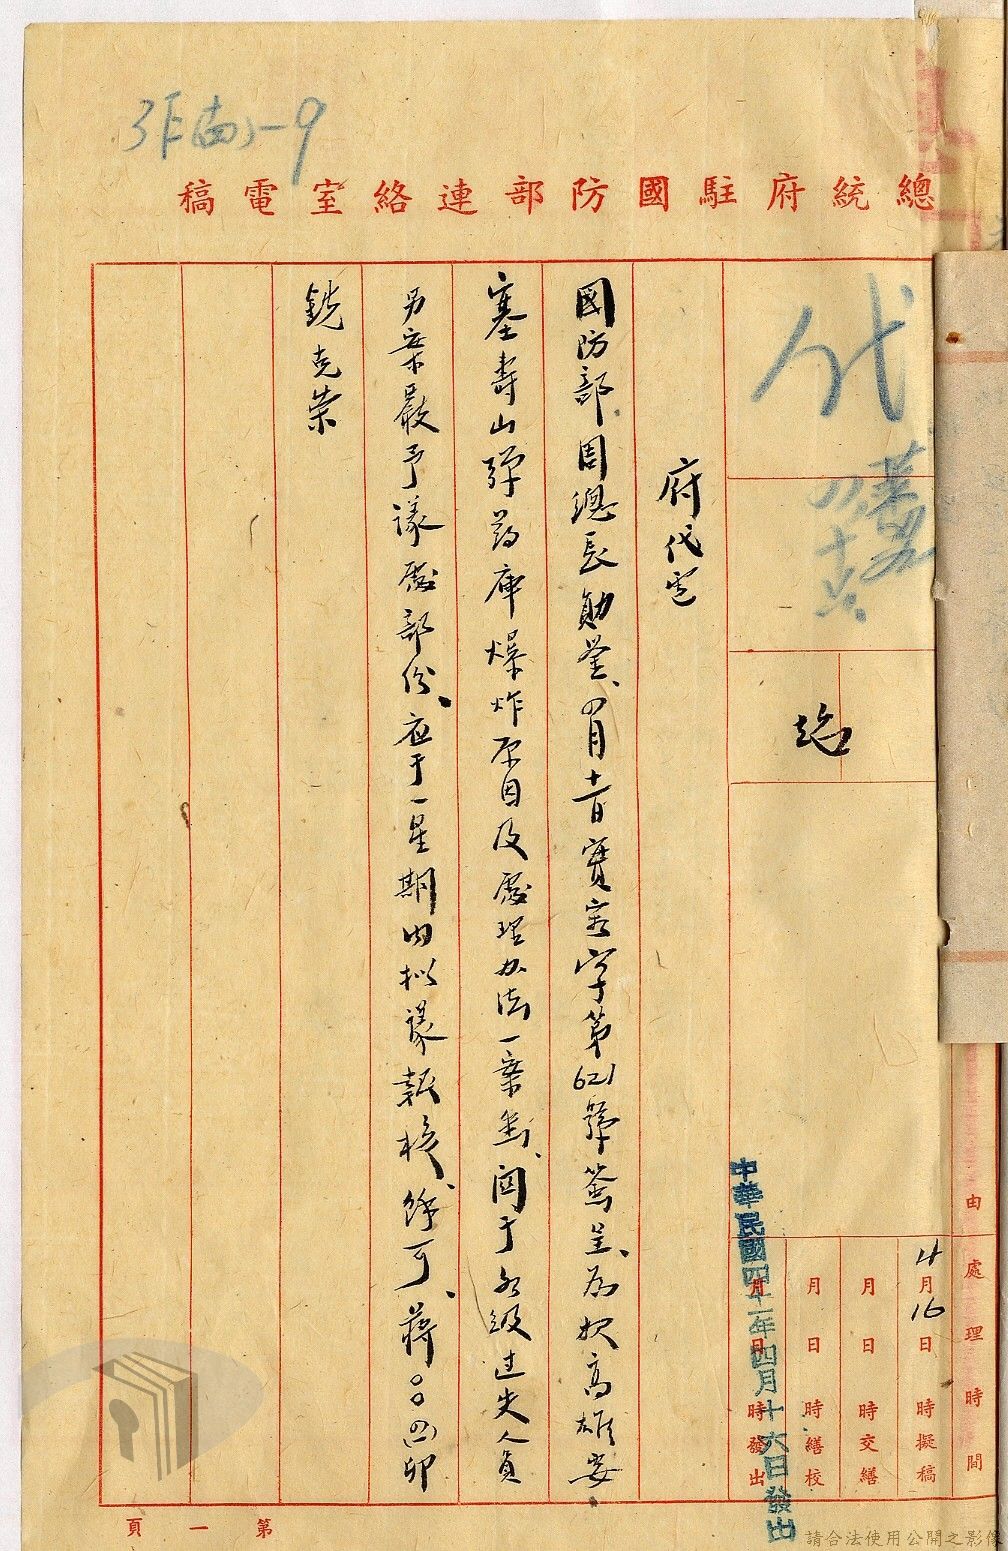 總統府駐國防部連絡室電稿
代
府代電
國防部周總長勛鑒、四月十一日實密字第621號簽呈、為报高雄要
塞壽山彈药庫爆炸原因及處理办法一案悉、関于各級过失人員
另案嚴予議處部份、应于一星期內拟議報核、餘可、蔣○○(四)卯
銑克荣
由
處理時間
4月16日 時擬稿
月 日 時交繕
月 日 時繕校
月 日 時發出
中華民國四十一年四月十六日發出
第一頁
請合法使用公開之影像